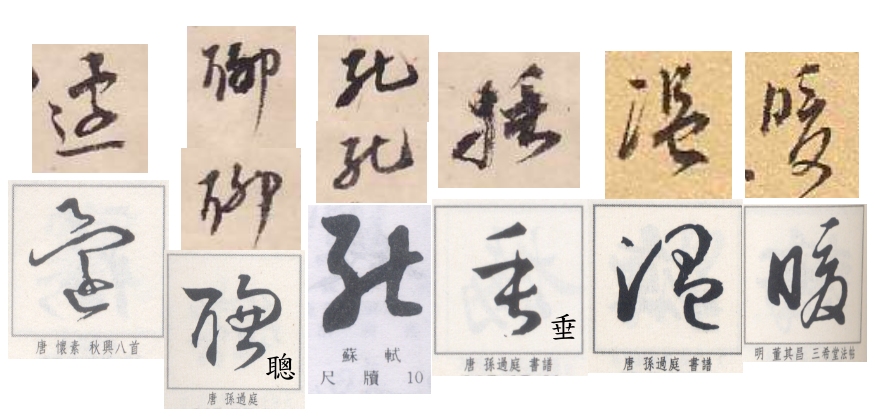 聊 捶 溫 暖
聊
聰 垂 溫 暖
垂
聰
唐 懷素 秋興八首
唐 孫過庭
蘇軾
尺牘 10
唐 孫過庭 書譜
唐 孫過庭 書譜
明 董其昌 三希堂法帖